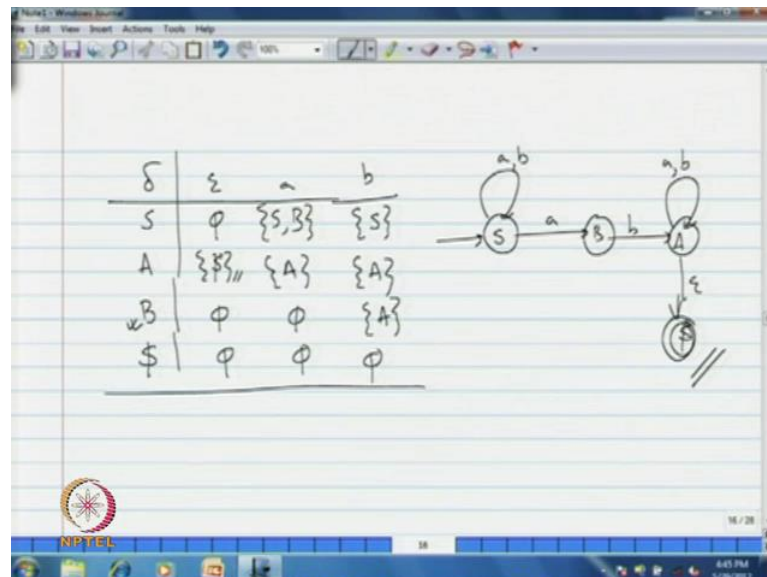 Note1 - Windows Journal
File Edit View Insert Actions Tools Help
100%
δ ε a b
S φ {S,B} {S}
A {$} {A} {A}
B φ φ {A}
$ φ φ φ
a,b a,b
S a B b A
ε
$
NPTEL
16 / 28
16
4:45 PM